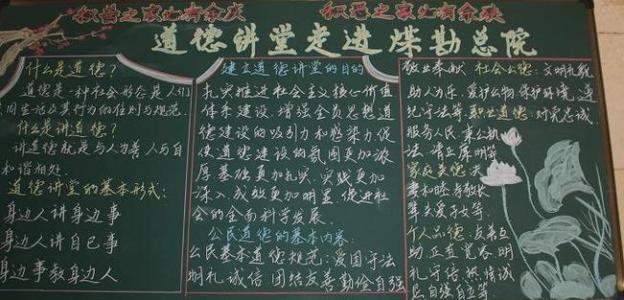 积善之家必有余庆 积善之家必有余殃
道德讲堂走进煤勘总院
什么是道德?
道德是一种社会形态是人们
共同生活及其行为的准则与规范.
什么是讲道德?
讲道德就是与人为善人与自
和谐相处
道德讲堂的基本形式:
身边人讲身边事
身边人讲自己事
身边事教身边人
建立道德讲堂的目的
扎实推进社会主义核心价值
体系建设,增强全员思想道
德建设的吸引力和感染力促
使道德建设的氛围更加浓
厚基础更加扎实,实践更加
深入,成效更加明显,促进社
会的全面科学发展.
公民道德的基本内容:
公民基本道德规范:爱国守法
明礼诚信 团结友善勤俭自强
敬业奉献 社会公德:文明礼貌
助人为乐、爱护公物保护环境、遵
纪守法等.职业道德:对党忠诚
服务人民、秉公执
法、清正廉明等
家庭美德:夫
妻和睦孝敬长
辈关爱子女等.
个人品德:
助、正直宽容、明
礼守信、热情诚
恳、自强自立等